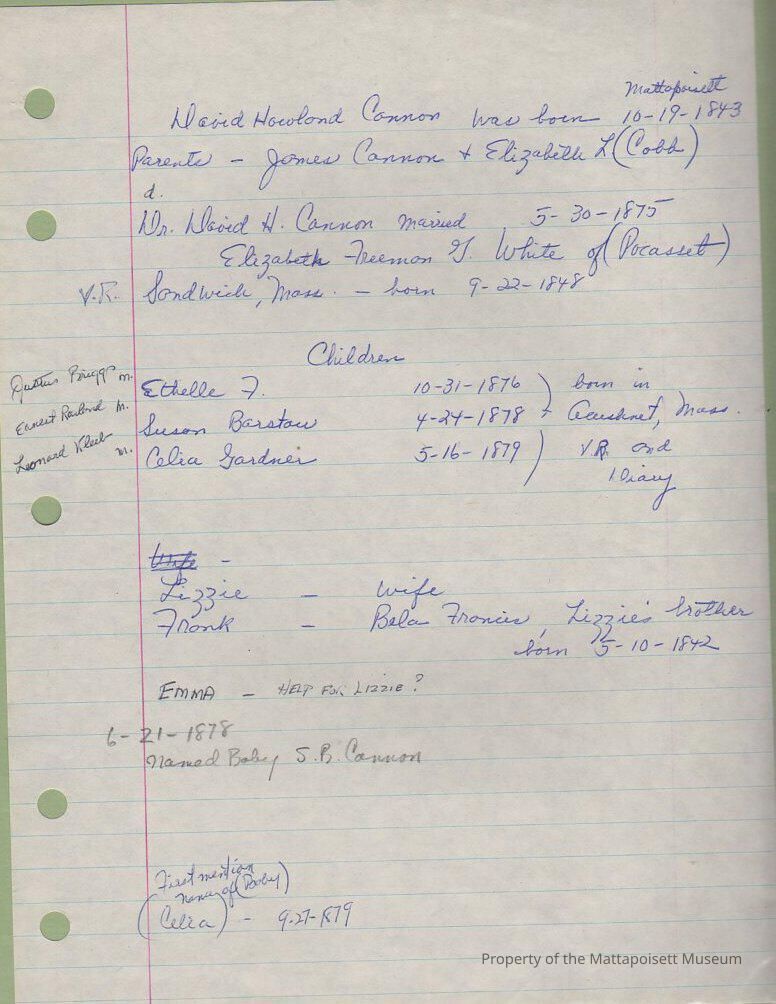 Mattapoisett
David Howland Cannon was born 10-19-1843
Parents - James Cannon + Elizabeth L (Cobb)
d.
Dr. David H. Cannon married 5-30-1875
Elizabeth Freeman G. White of (Pocasset)
V.R. Sandwich, Mass. - born 9-22-1848
Children
Justus Briggs m. Ethelle F. 10-31-1876 ) born in
Earnest m. Susan Barstow 4-24-1878 + Acushnet, Mass.
Leonard m. Celia Gardner 5-16-1879 ) V.R. and
Diary
Wife -
Lizzie - wife
Frank - Bela Francis, Lizzie's brother
born 5-10-1842
EMMA - HELP FOR LIZZIE?
6-21-1878
Named Baby S.B. Cannon
First mention
name of (Baby)
(Celia) - 9-27-1879
Property of the Mattapoisett Museum